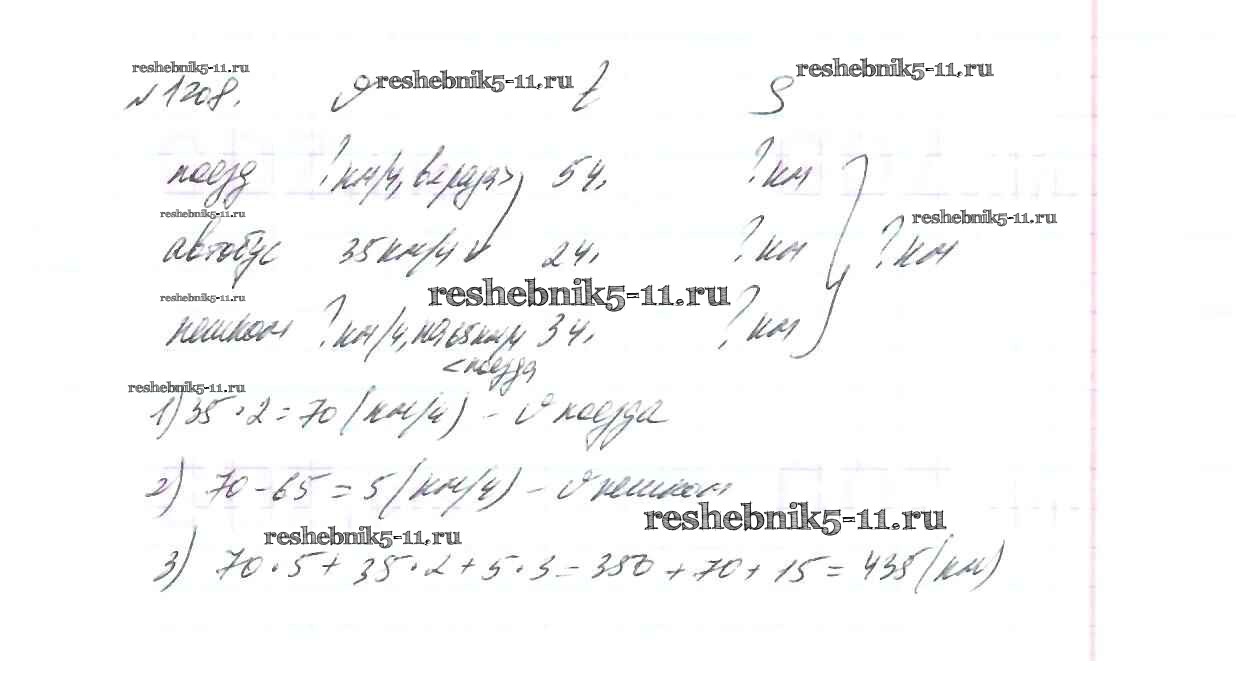 reshebnik5-11.ru
№1208. v reshebnik5-11.ru t S reshebnik5-11.ru
поезд ? км/ч, в 2 раза > 5 ч. ? км
reshebnik5-11.ru reshebnik5-11.ru
автобус 35 км/ч 2 ч. ? км ? км
reshebnik5-11.ru reshebnik5-11.ru
пешком ? км/ч, на 65 км/ч 3 ч. ? км
< поезда
reshebnik5-11.ru
1) 35 · 2 = 70 (км/ч) - v поезда
2) 70 - 65 = 5 (км/ч) - v пешком
reshebnik5-11.ru reshebnik5-11.ru
3) 70 · 5 + 35 · 2 + 5 · 3 = 350 + 70 + 15 = 435 (км)